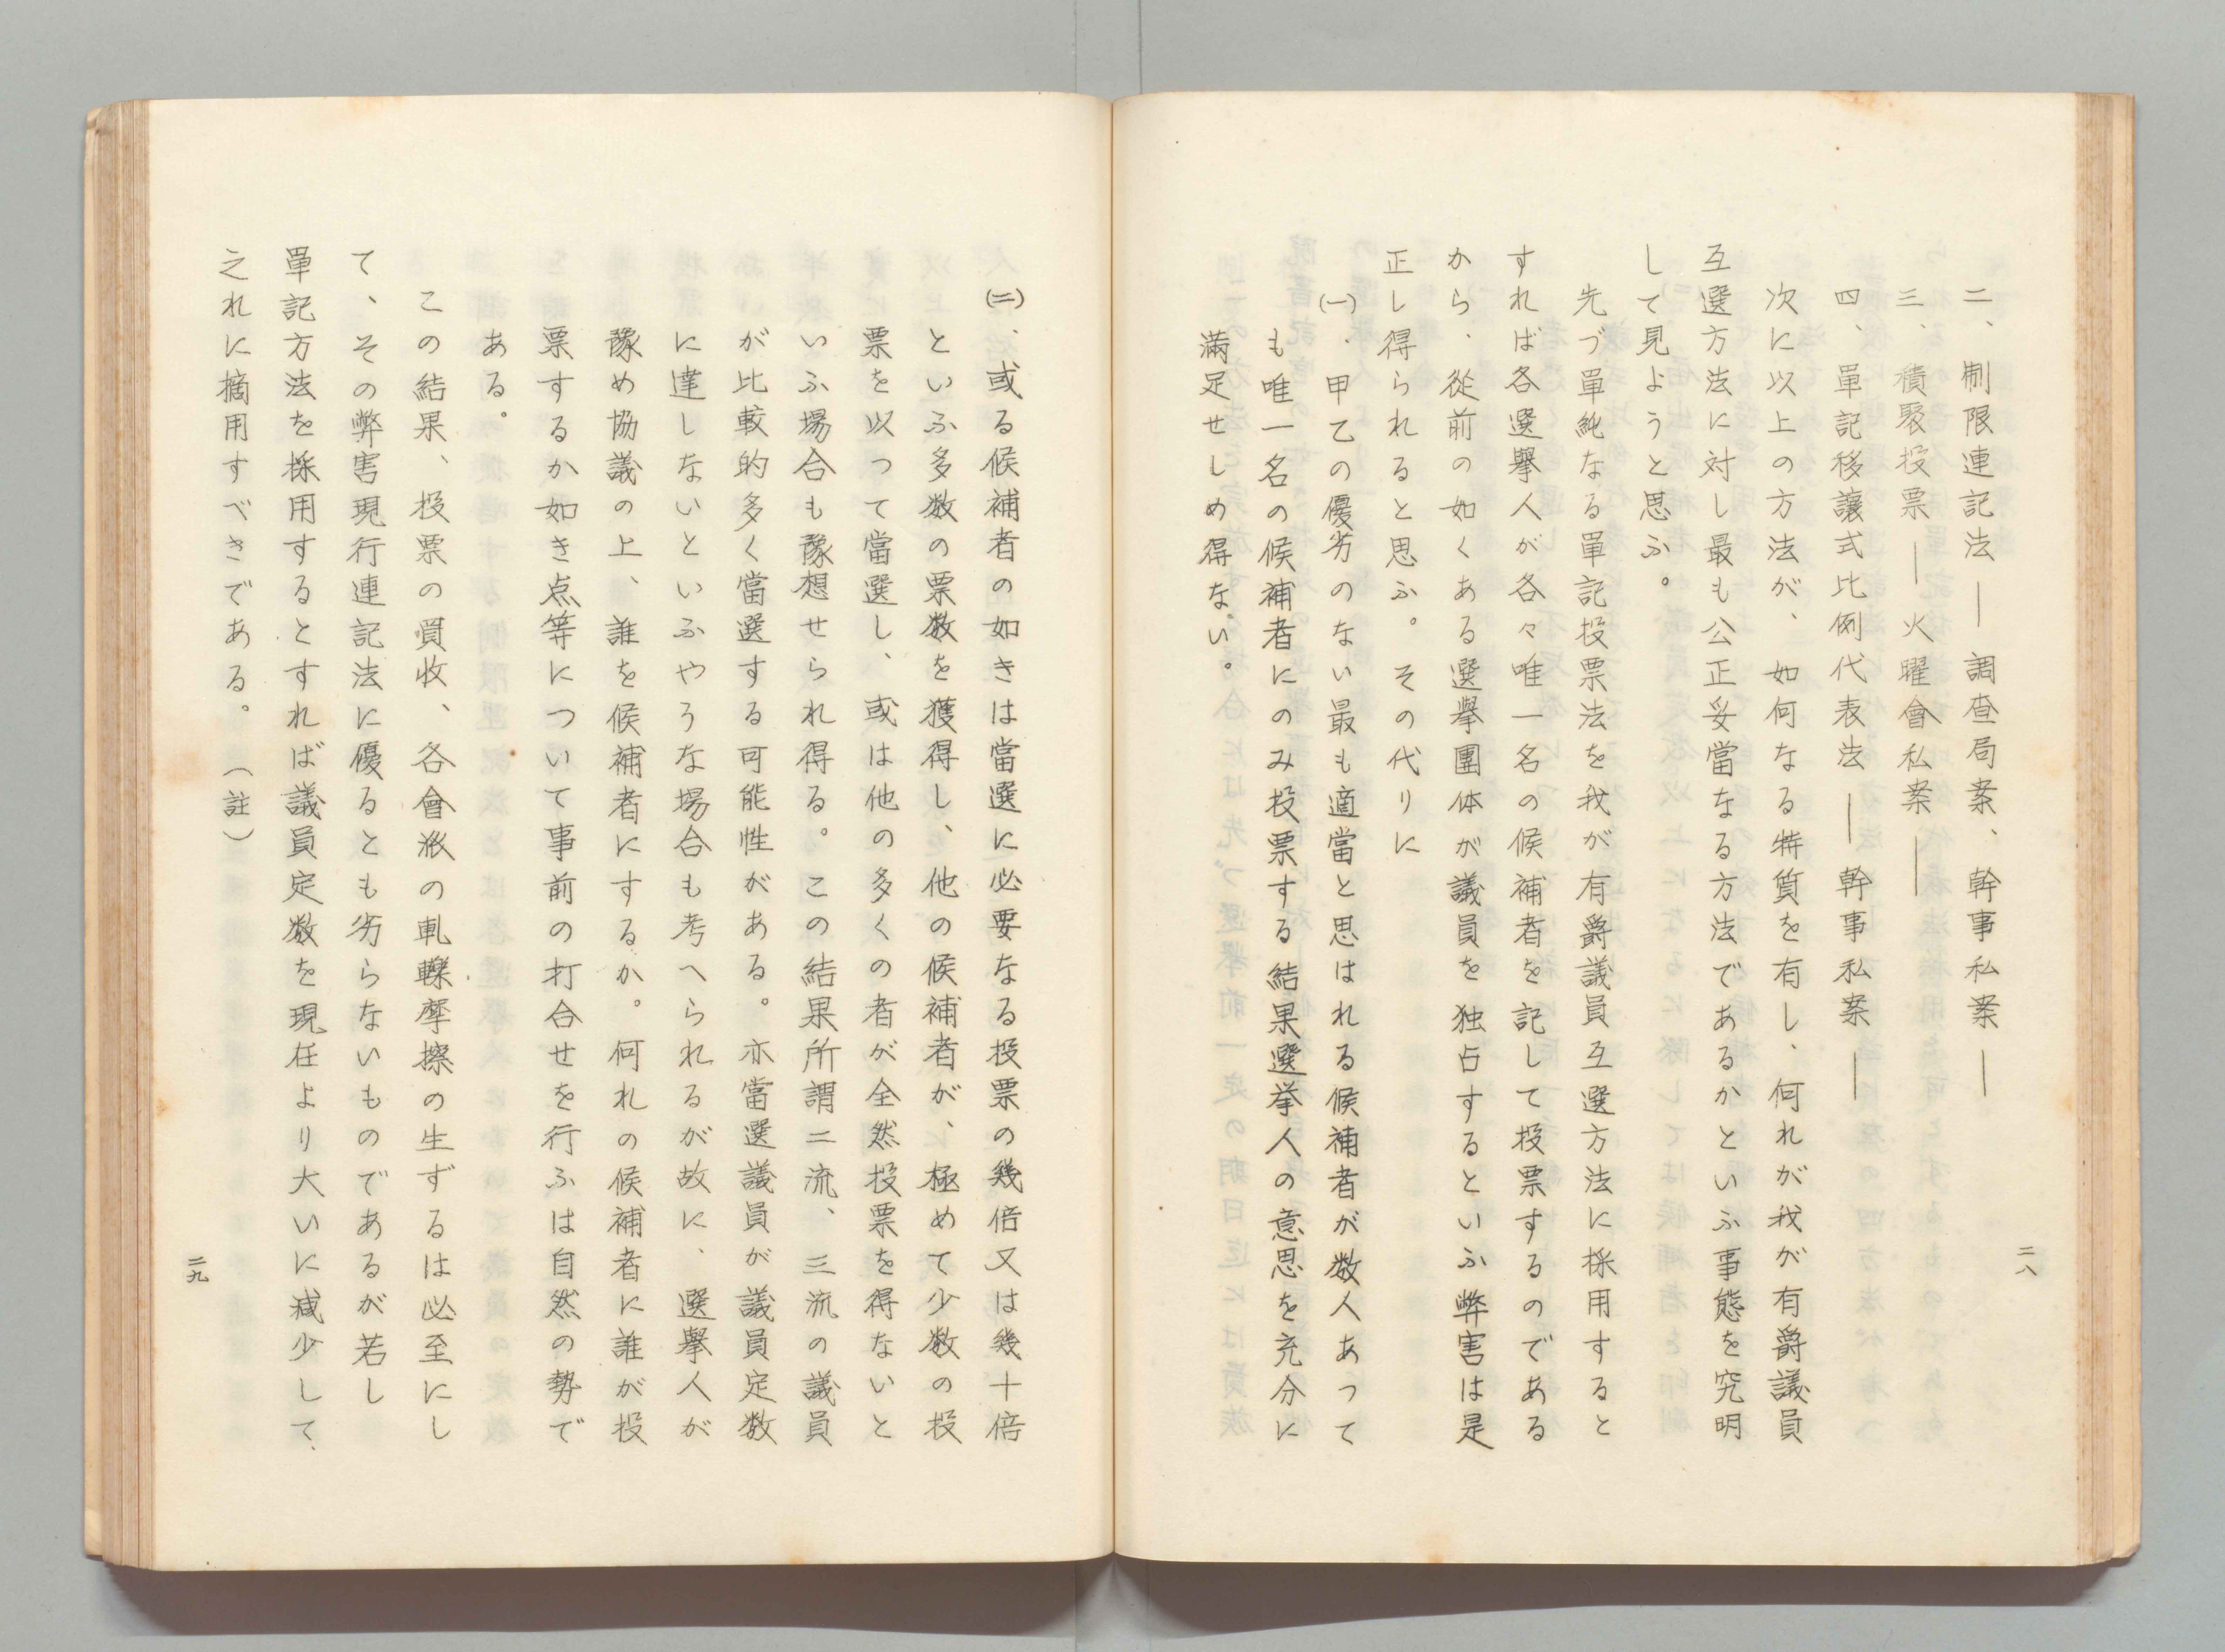 二、制限連記法―調査局案、幹事私案―
三、積聚投票―火曜會私案―
四、單記移讓式比例代表法―幹事私案―
次に以上の方法が、如何なる特質を有し、何れが我が有爵議員
互選方法に対し最も公正妥當なる方法であるかといふ事態を究明
して見ようと思ふ。
先づ單純なる單記投票法を我が有爵議員互選方法に採用すると
すれば各選擧人が各々唯一名の候補者を記して投票するのである
から、從前の如くある選擧團体が議員を独占するといふ弊害は是
正し得られると思ふ。その代りに
(一)、甲乙の優劣のない最も適當と思はれる候補者が数人あって
も唯一名の候補者にのみ投票する結果選挙人の意思を充分に
滿足せしめ得ない。
二八
(二)、或る候補者の如きは當選に必要なる投票の幾倍又は幾十倍
といふ多数の票数を獲得し、他の候補者が、極めて少数の投
票を以って當選し、或は他の多くの者が全然投票を得ないと
いふ場合も豫想せられ得る。この結果所謂二流、三流の議員
が比較的多く當選する可能性がある。亦當選議員が議員定数
に達しないといふやうな場合も考へられるが故に、選擧人が
豫め協議の上、誰を候補者にするか。何れの候補者に誰が投
票するか如き点等について事前の打合せを行ふは自然の勢で
ある。
この結果、投票の買收、各會派の軋轢摩擦の生ずるは必至にし
て、その弊害現行連記法に優るとも劣らないものであるが若し
單記方法を採用するとすれば議員定数を現在より大いに減少して、
之れに摘用すべきである。（註）
二九